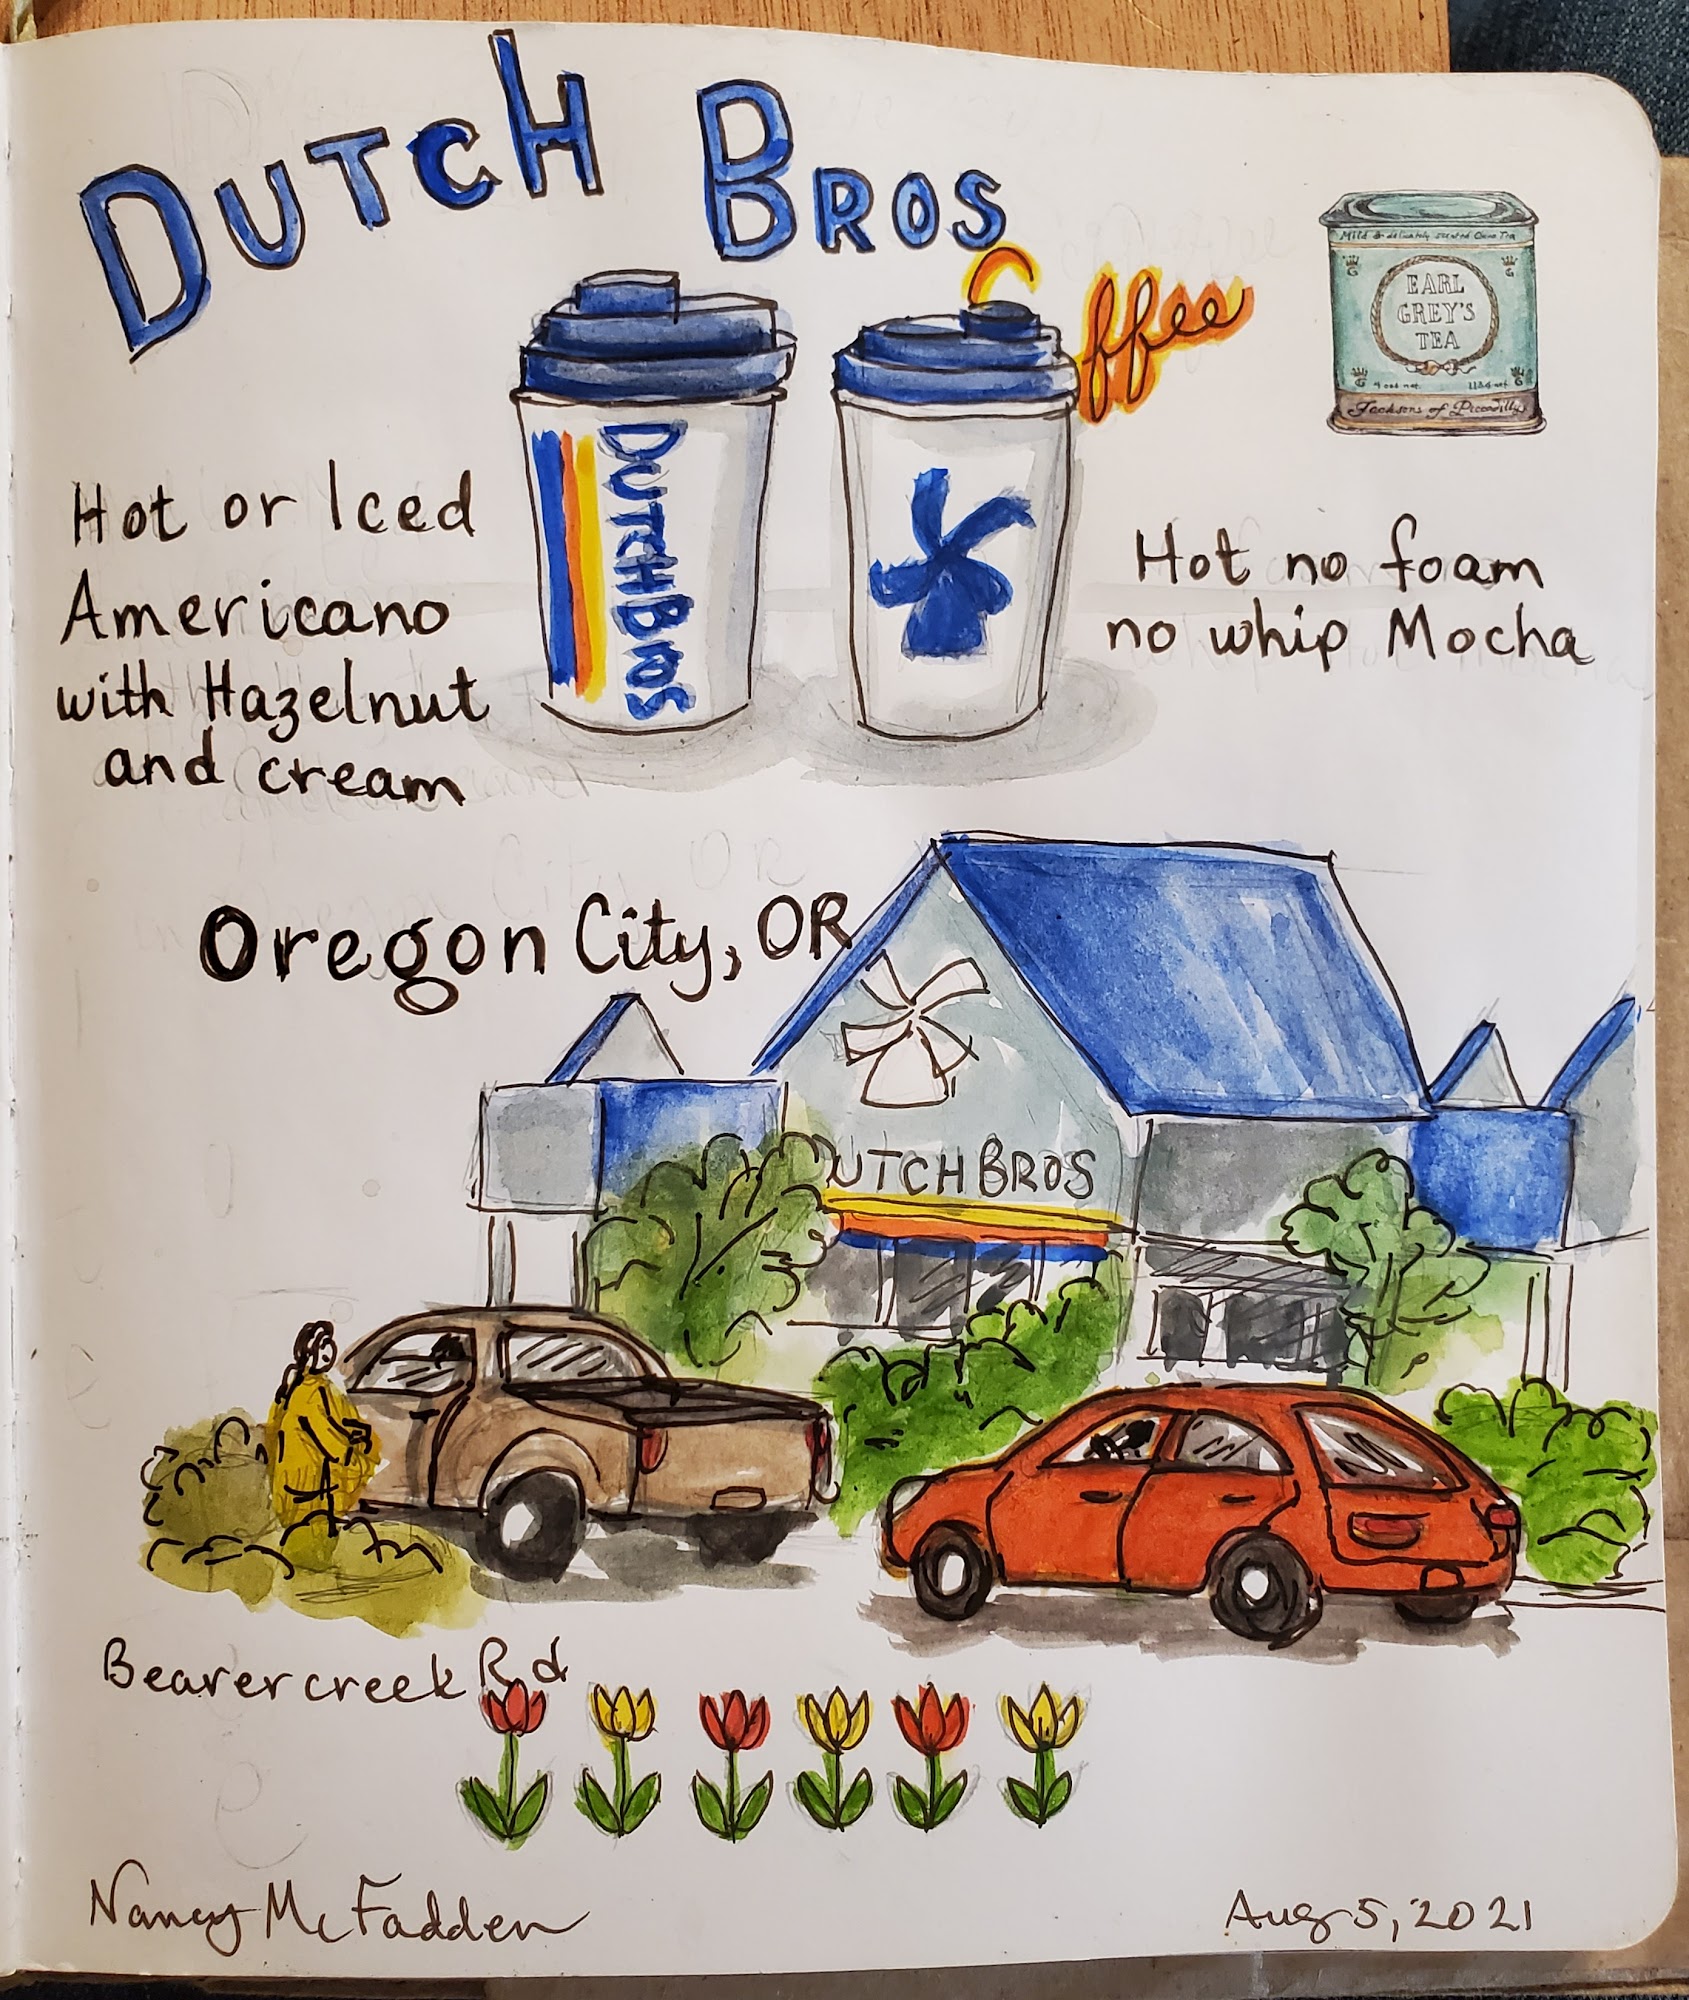 DUTCH BROS
Coffee
Mild & delicately scented China Tea
EARL
GREY'S
TEA
Jacksons of Piccadilly
DUTCH BROS
Hot or Iced
Americano
with Hazelnut
and cream
Hot no foam
no whip Mocha
Oregon City, OR
DUTCH BROS
Beavercreek Rd
Nancy McFadden
Aug 5, 2021